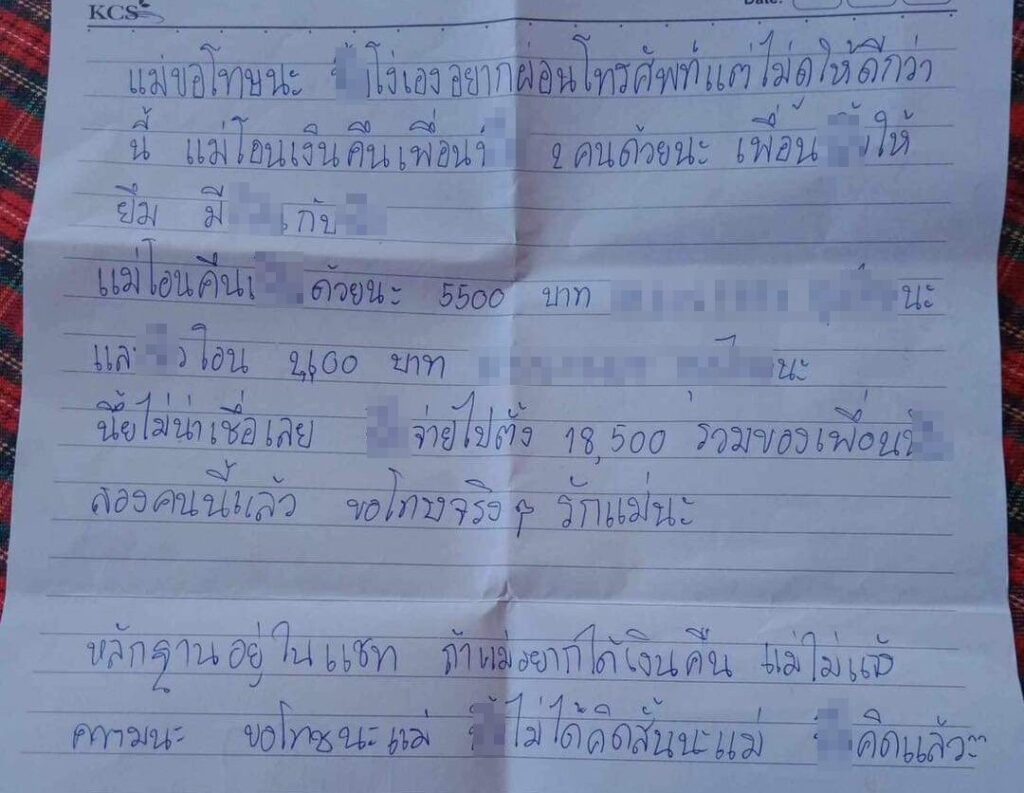 KCS
Date:
แม่ขอโทษนะ โง่เองอยากผ่อนโทรศัพท์แต่ไม่ดูให้ดีกว่า
นี้ แม่โอนเงินคืนเพื่อน 2 คนด้วยนะ เพื่อน ให้
ยืม มี กับ
แม่โอนคืน ด้วยนะ 5500 บาท นะ
และ โอน บาท นะ
ไม่น่าเชื่อเลย จ่ายไปตั้ง 18,500 รวมของเพื่อน
สองคนนี้แล้ว ขอโทษจริงๆ รักแม่นะ
หลักฐานอยู่ในแชท ถ้าแม่อยากได้เงินคืน แม่ไปแจ้ง
ความนะ ขอโทษนะแม่ ไม่ได้คิดสั้นนะแม่ คิดแล้ว